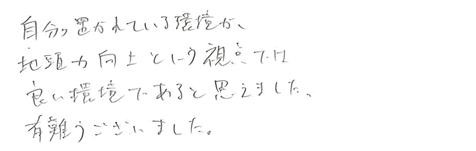 自分の置かれている環境が、
地頭力向上という視点では
良い環境であると思えました。
有難うございました。